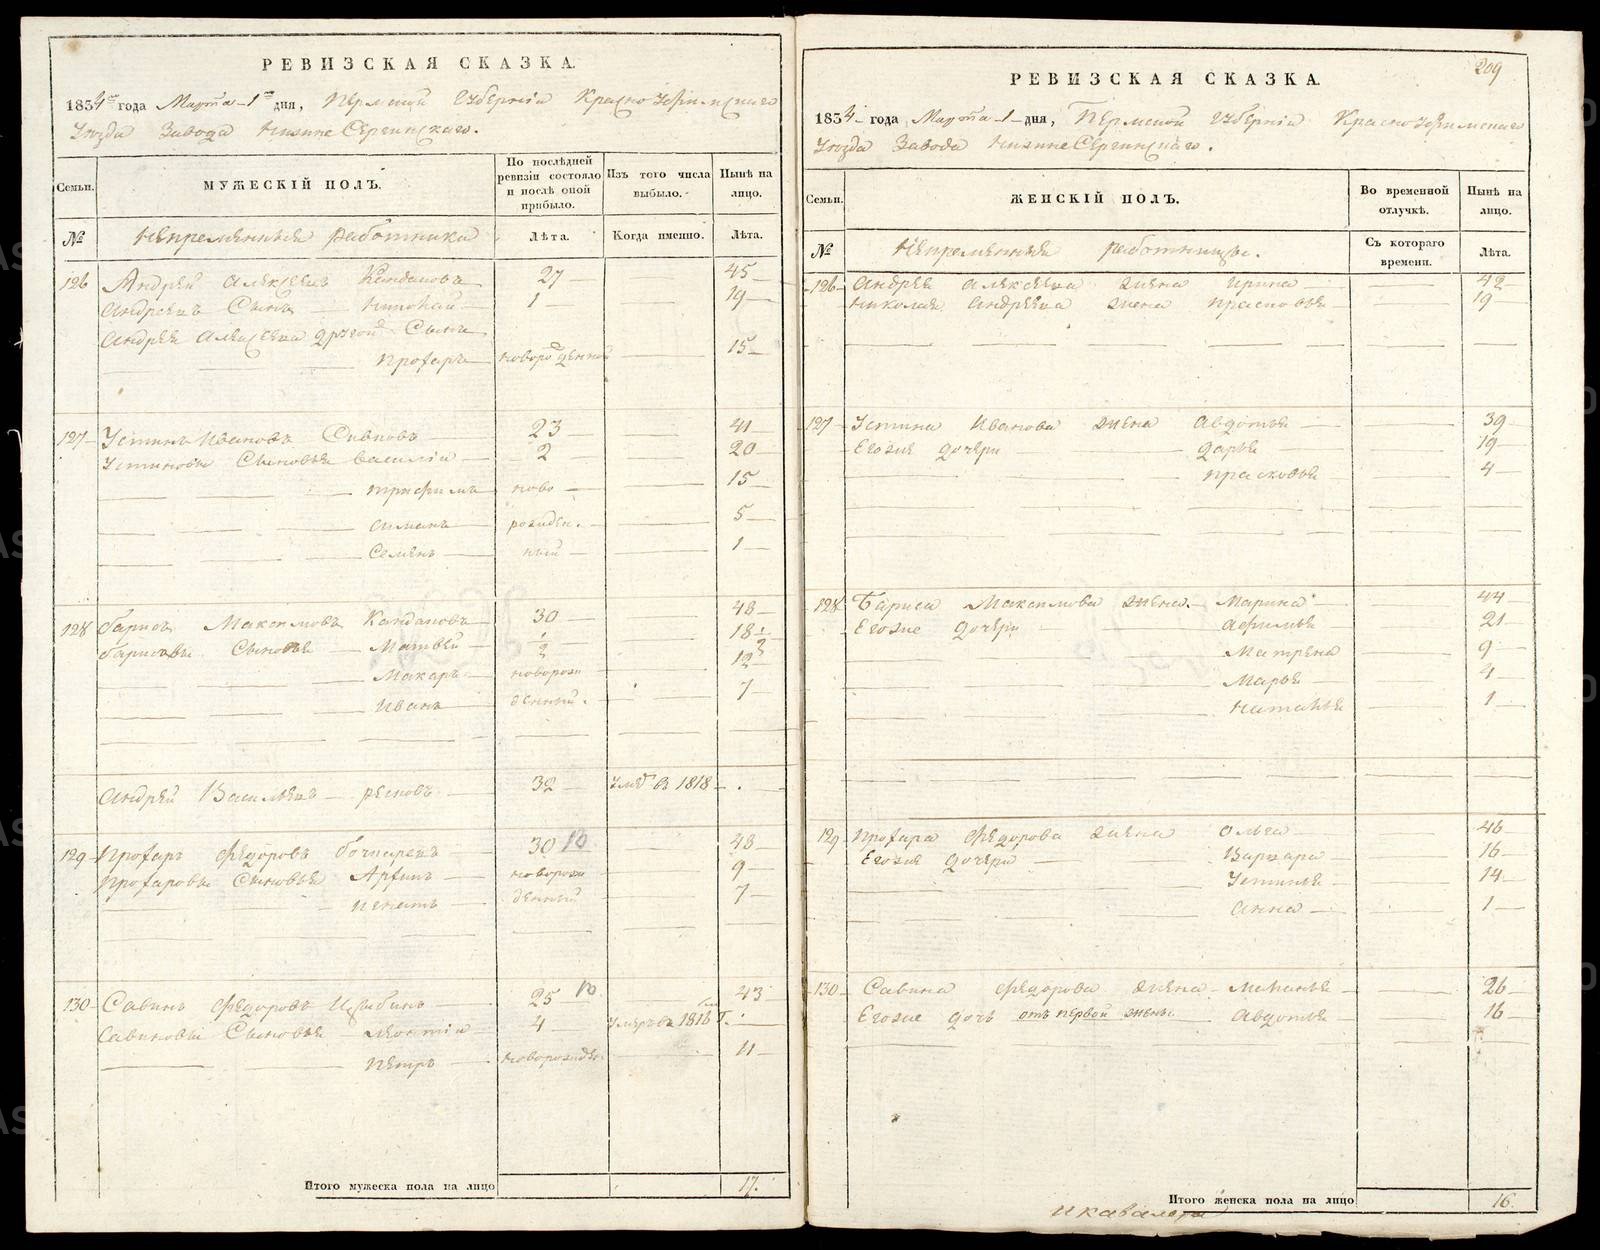 РЕВИЗСКАЯ СКАЗКА.
1834 года Марта 1 дня, Пермской Губерніи Красноуфимскаго
Уѣзда Завода Нижне Сергинскаго.
Семьи.
МУЖЕСКІЙ ПОЛЪ.
По послѣдней ревизіи состояло и послѣ оной прибыло.
Изъ того числа выбыло.
Нынѣ на лицо.
№
Непремѣнныя работники
Лѣта.
Когда именно.
Лѣта.
126 Андрей Алексѣевъ 27 45
Андреевъ Сынъ Николай 1 19
Андрея Алексѣева другой Сынъ
Прохоръ новорожденной 15
127 Устинъ Ивановъ 23 41
Устиновы Сыновья Василій 2 20
Трифимъ ново 15
Симанъ рожден. 5
Семенъ ный 1
128 Барисъ Максимовъ 30 48
Барисовы Сыновья Матвей 18
Макаръ новорож 12
Иванъ денный. 7
Андрей Васильевъ 32 1818
129 Прохаръ Федоровъ Бочкаревъ 30 48
Прохаровы Сыновья новорож 9
Игнатъ денный 7
130 Савинъ Федоровъ 25 43
Савиновы Сыновья Леонтій 4 Умеръ въ 1818 г.
Петръ новорожден 11
Итого мужеска пола на лицо 17.
209
РЕВИЗСКАЯ СКАЗКА.
1834 года Марта 1 дня, Пермской Губерніи Красноуфимскаго
Уѣзда Завода Нижне Сергинскаго.
Семьи.
ЖЕНСКІЙ ПОЛЪ.
Во временной отлучкѣ.
Нынѣ на лицо.
№
Непремѣнныя работницы.
Съ котораго времени.
Лѣта.
126 Андрея Алексѣева жена Ирина 42
Николая Андреева жена Прасковья 19
127 Устина Иванова жена Авдотья 39
Егоже дочери Дарья 19
Прасковья 4
128 Бариса Максимова жена Марина 44
Егоже дочери Афимья 21
Матрена 9
Марья 4
Наталья 1
129 Прохара Федорова жена Ольга 46
Егоже дочери Варвара 16
Устинья 14
Анна 1
130 Савина Федорова жена Меланья 26
Егоже дочь отъ первой жены Авдотья 16
Итого женска пола на лицо 16.